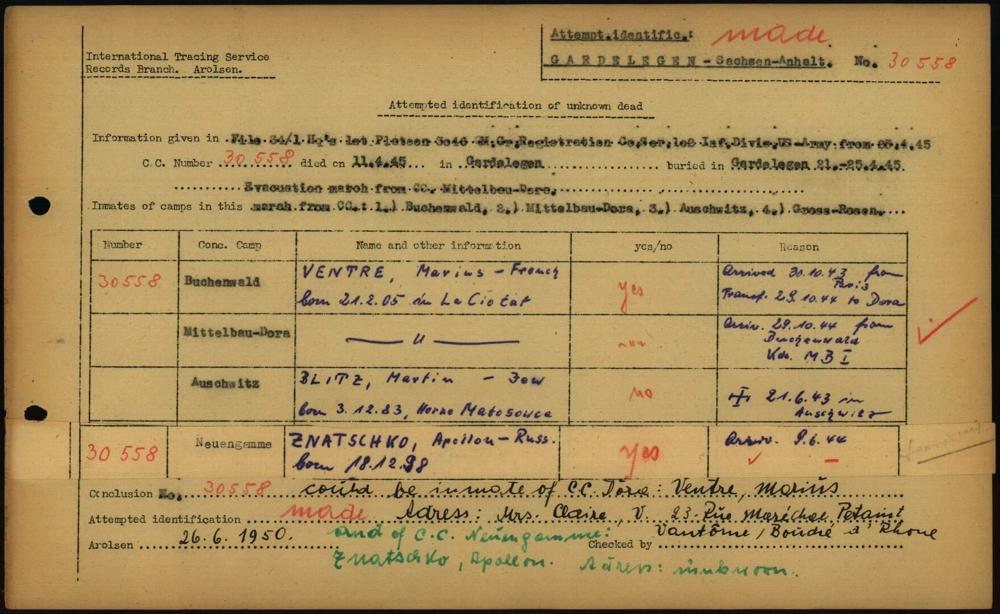 International Tracing Service
Records Branch. Arolsen.
Attempt.identific.: made
GARDELEGEN - Sachsen-Anhalt. No. 30558
Attempted identification of unknown dead
Information given in File 34/1 Hq's 1st Platoon 3046 Registration US-Army from 4.45
C.C. Number 30 558 died on 11.4.45 in Gardelegen buried in Gardelegen 21.-25.4.45
Evacuation march from CC. Mittelbau-Dora.
Inmates of camps in this march from CC.: 1.) Buchenwald, 2.) Mittelbau-Dora, 3.) Auschwitz, 4.) Gross-Rosen.
Number Conc. Camp Name and other information yes/no Reason
30558 Buchenwald VENTRE, Marius - French yes Arrived 30.10.43 from Paris
born 21.2.05 in La Ciotat Transf. 29.10.44 to Dora
Mittelbau-Dora — " — -"- Arriv. 29.10.44 from
Buchenwald
Kdo. M B I
Auschwitz BLITZ, Martin - Jew no
born 3.12.83, † 21.6.43 in
Auschwitz
30 558 Neuengamme ZNATSCHKO, Apollon - Russ. yes Arriv. 9.6.44
born 18.12.98
Conclusion No. 30558 could be inmate of CC. Dora: Ventre, Marius
Attempted identification made Adress: Mrs. Claire, V. 23 Rue Maréchal Petaint
Arolsen 26.6.1950. and of C.C. Neuengamme: Checked by Vantôme, Boudre a' Rhone
Znatschko, Apollon. Adress: unknown.